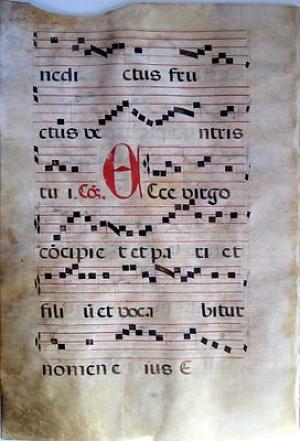 nedi ctus fru
ctus ve ntris
tui. Cō. Ecce virgo
cōcipie t et pa ri et
fili ū et voca bitur
nomen e ius E